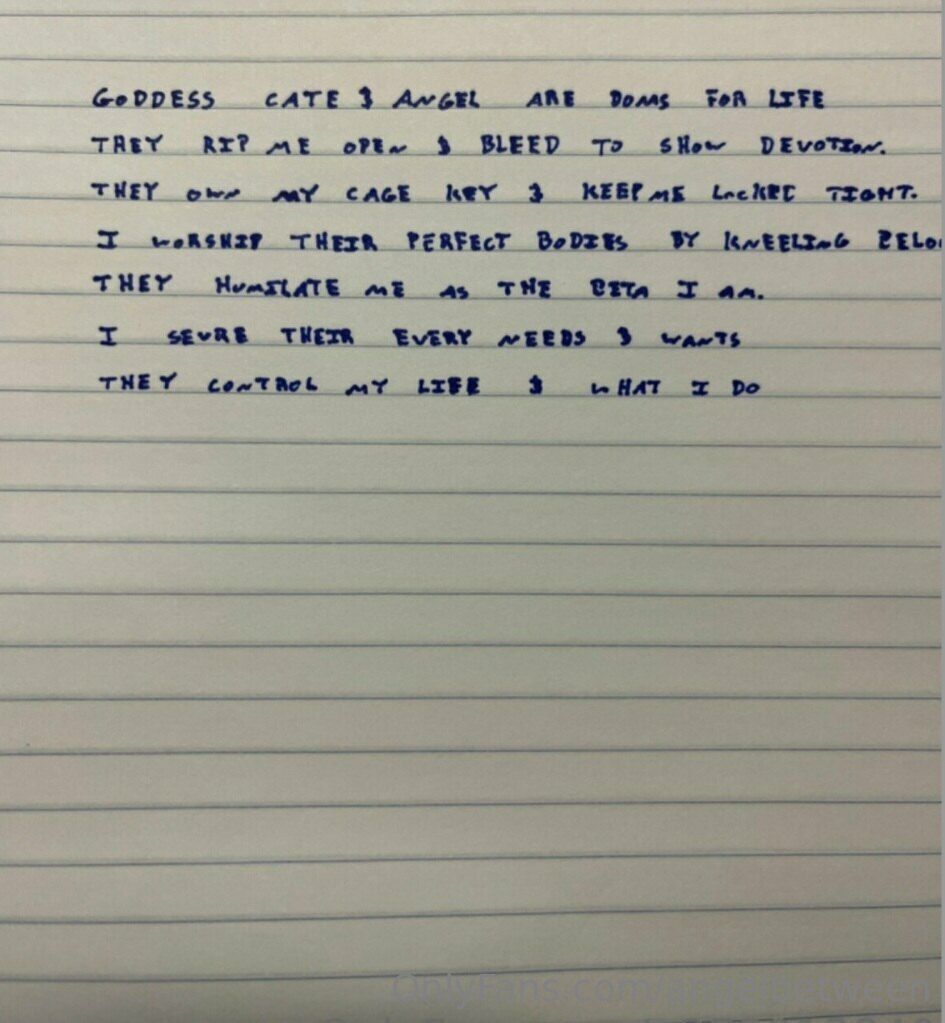 GODDESS CATE & ANGEL ARE DOMS FOR LIFE
THEY RIP ME OPEN & BLEED TO SHOW DEVOTION.
THEY OWN MY CAGE KEY & KEEP ME LOCKED TIGHT.
I WORSHIP THEIR PERFECT BODIES BY KNEELING BELO
THEY HUMILATE ME AS THE BETA I AM.
I SEVRE THEIR EVERY NEEDS & WANTS
THEY CONTROL MY LIFE & WHAT I DO
OnlyFans.com/angelbetween